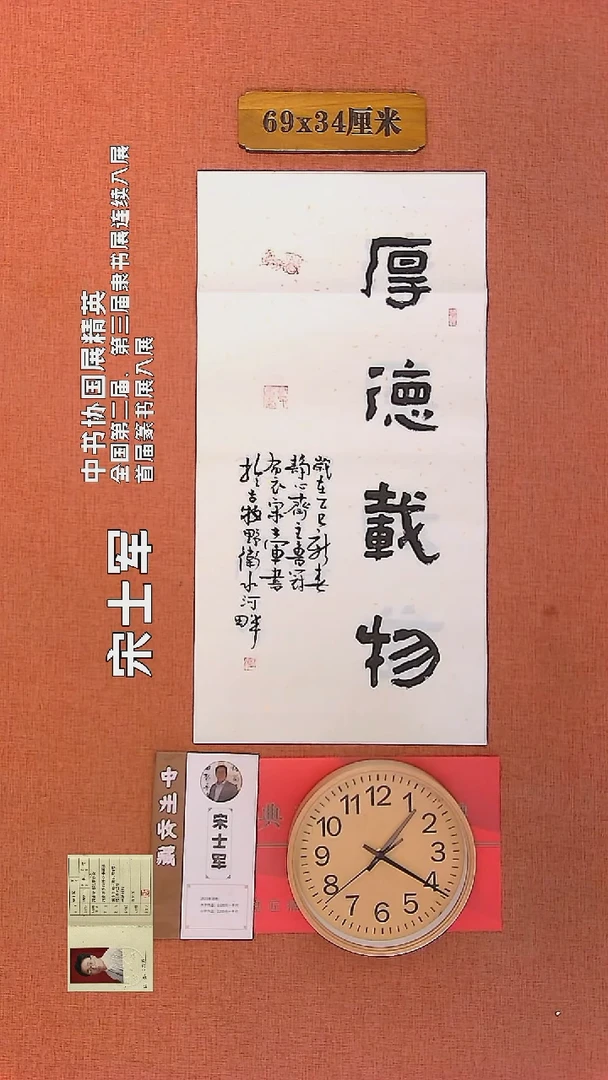 69x34厘米
厚德载物
歲在乙巳新春
静心齋主魯冠
布衣宋士軍書
於古牧野衛水河畔
中书协国展精英
全国第二届、第三届隶书展连续入展
首届篆书展入展
宋士军
宋士军
典
12
1
2
3
4
5
6
7
8
9
10
11